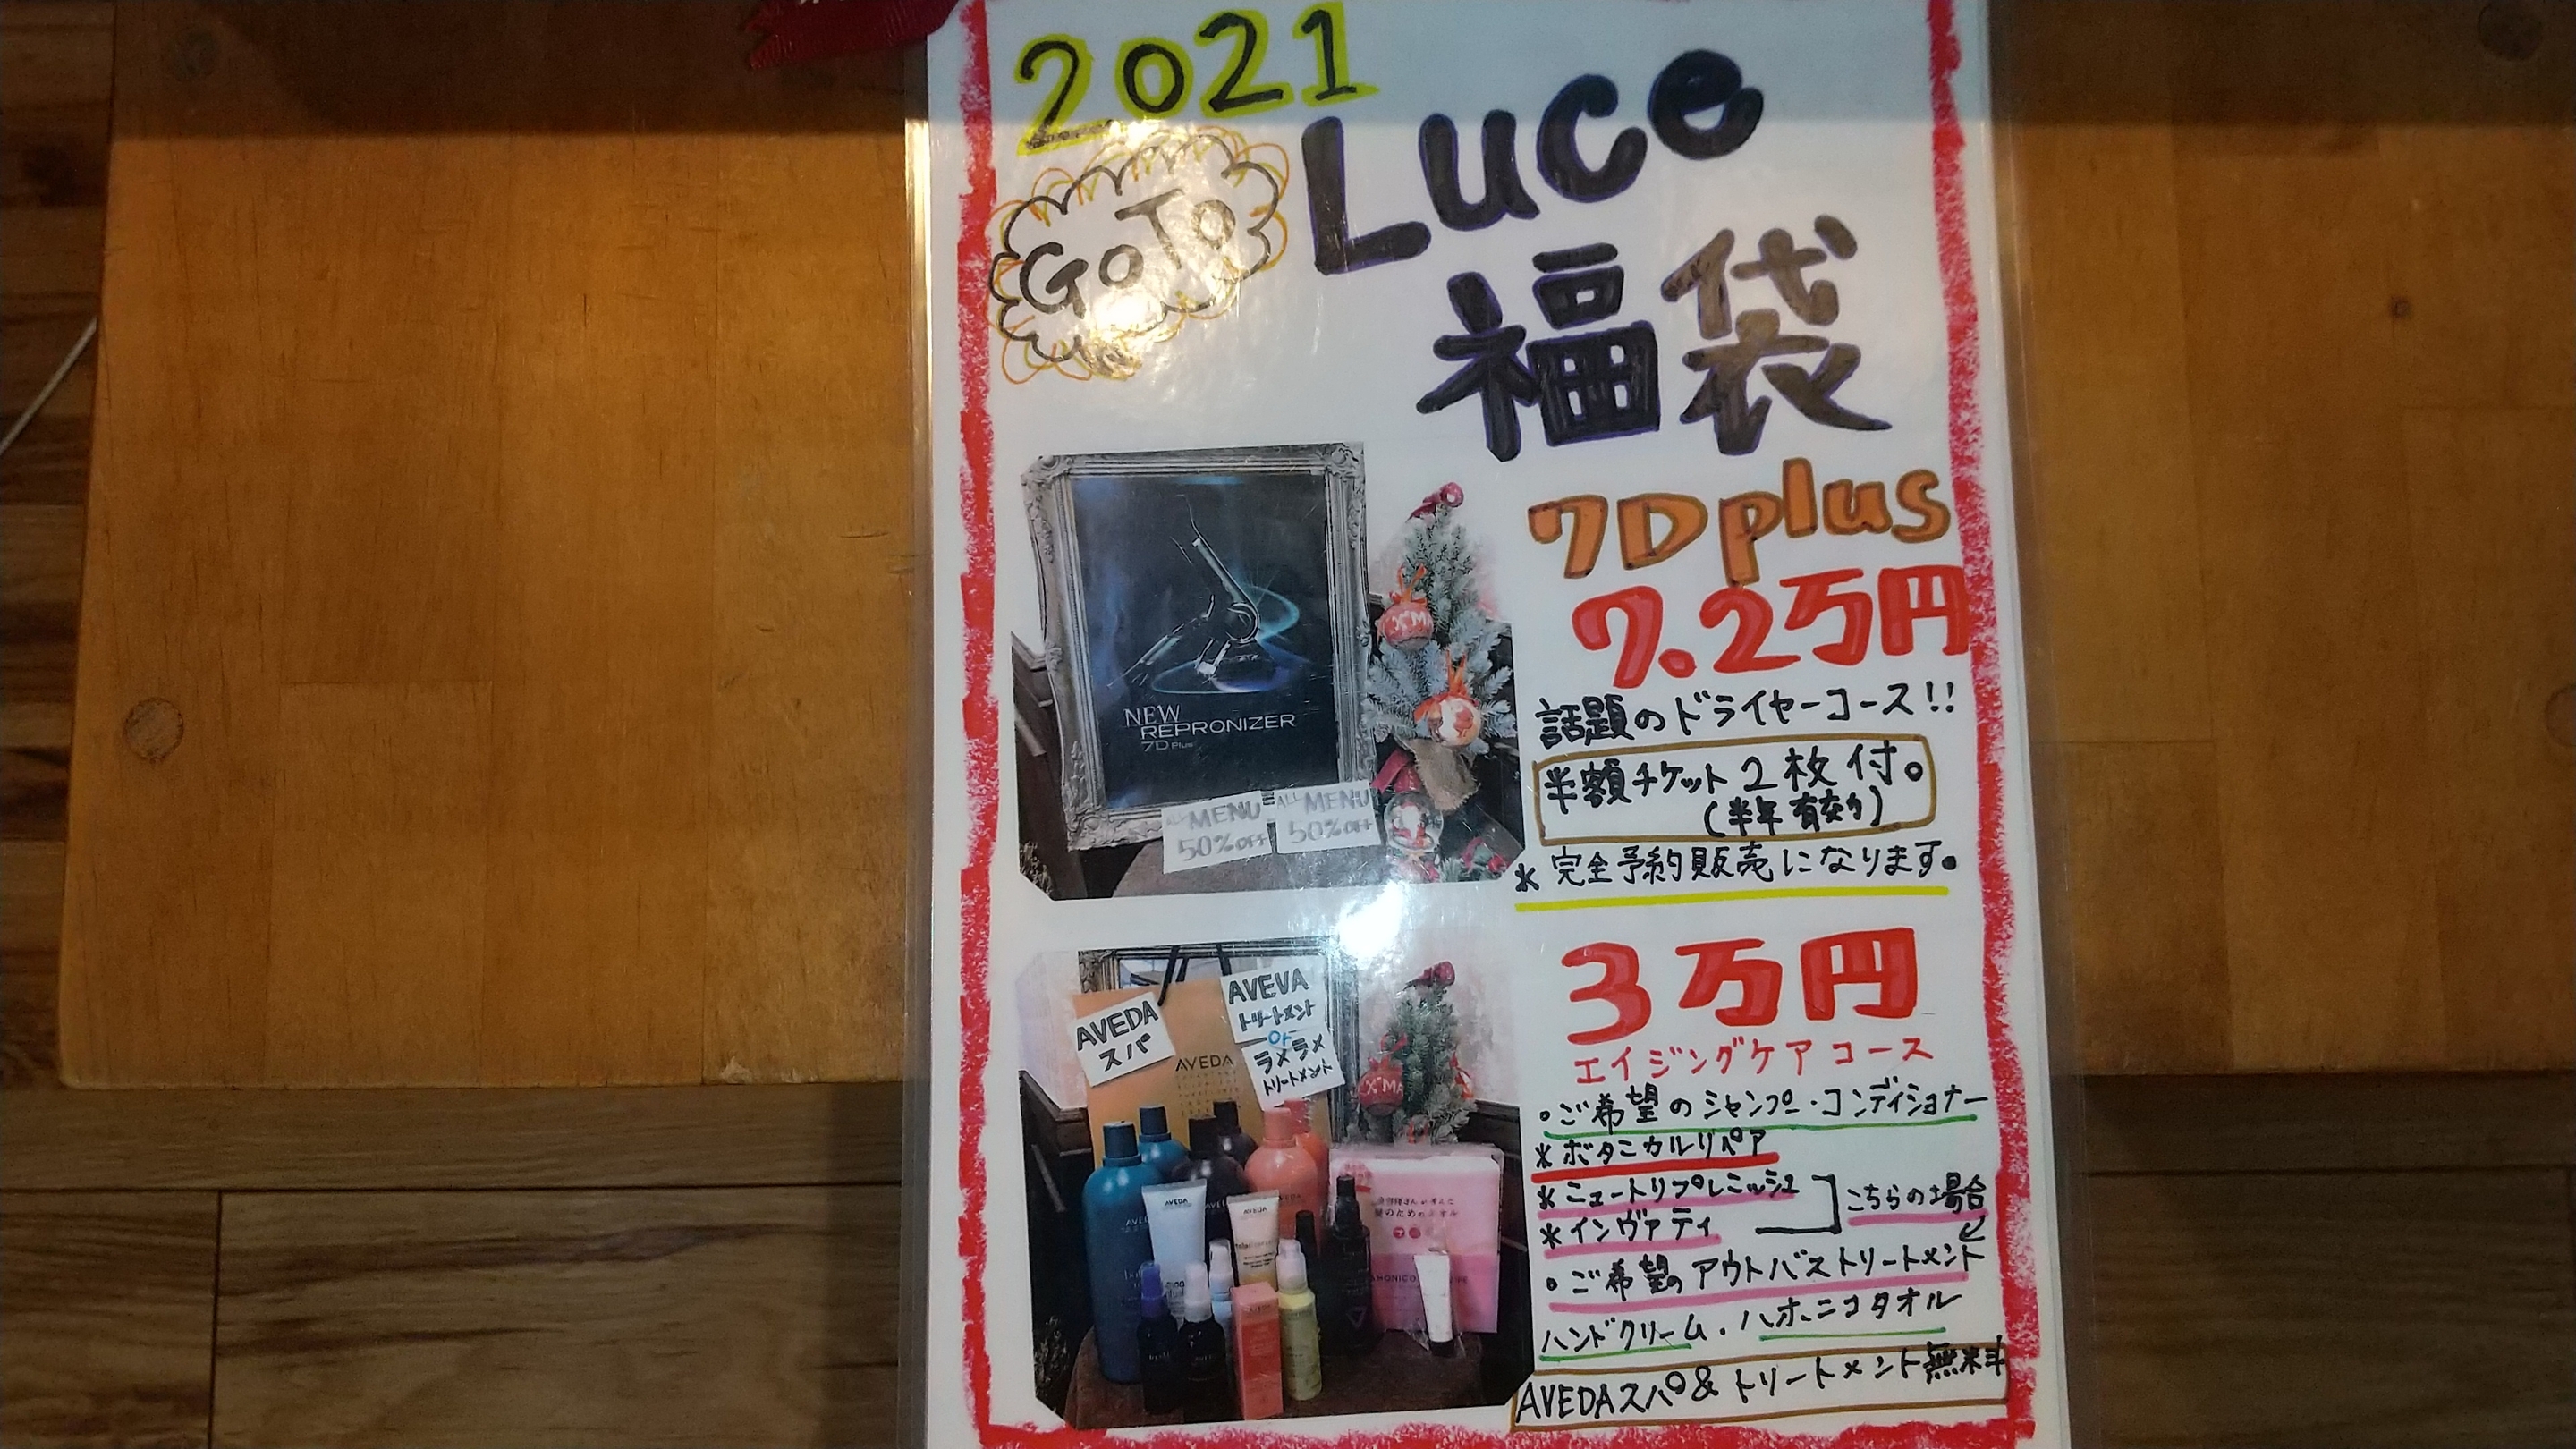 2021
GoTo
Luce
福袋
7Dplus
7.2万円
話題のドライヤーコース!!
半額チケット2枚付。
(半年有効)
* 完全予約販売になります。
NEW
REPRONIZER
7D Plus
ALL MENU
50%OFF
ALL MENU
50%OFF
3万円
エイジングケアコース
・ご希望のシャンプー・コンディショナー
*ボタニカルリペア
*ニュートリプレニッシュ
*インヴァティ
こちらの場合
・ご希望のアウトバストリートメント
ハンドクリーム・ハホニコタオル
AVEDAスパ&トリートメント無料
AVEDA
スパ
AVEVA
トリートメント
or
ラメラメ
トリートメント
AVEDA
AVEDA
AVEDA
髪のためのタオル